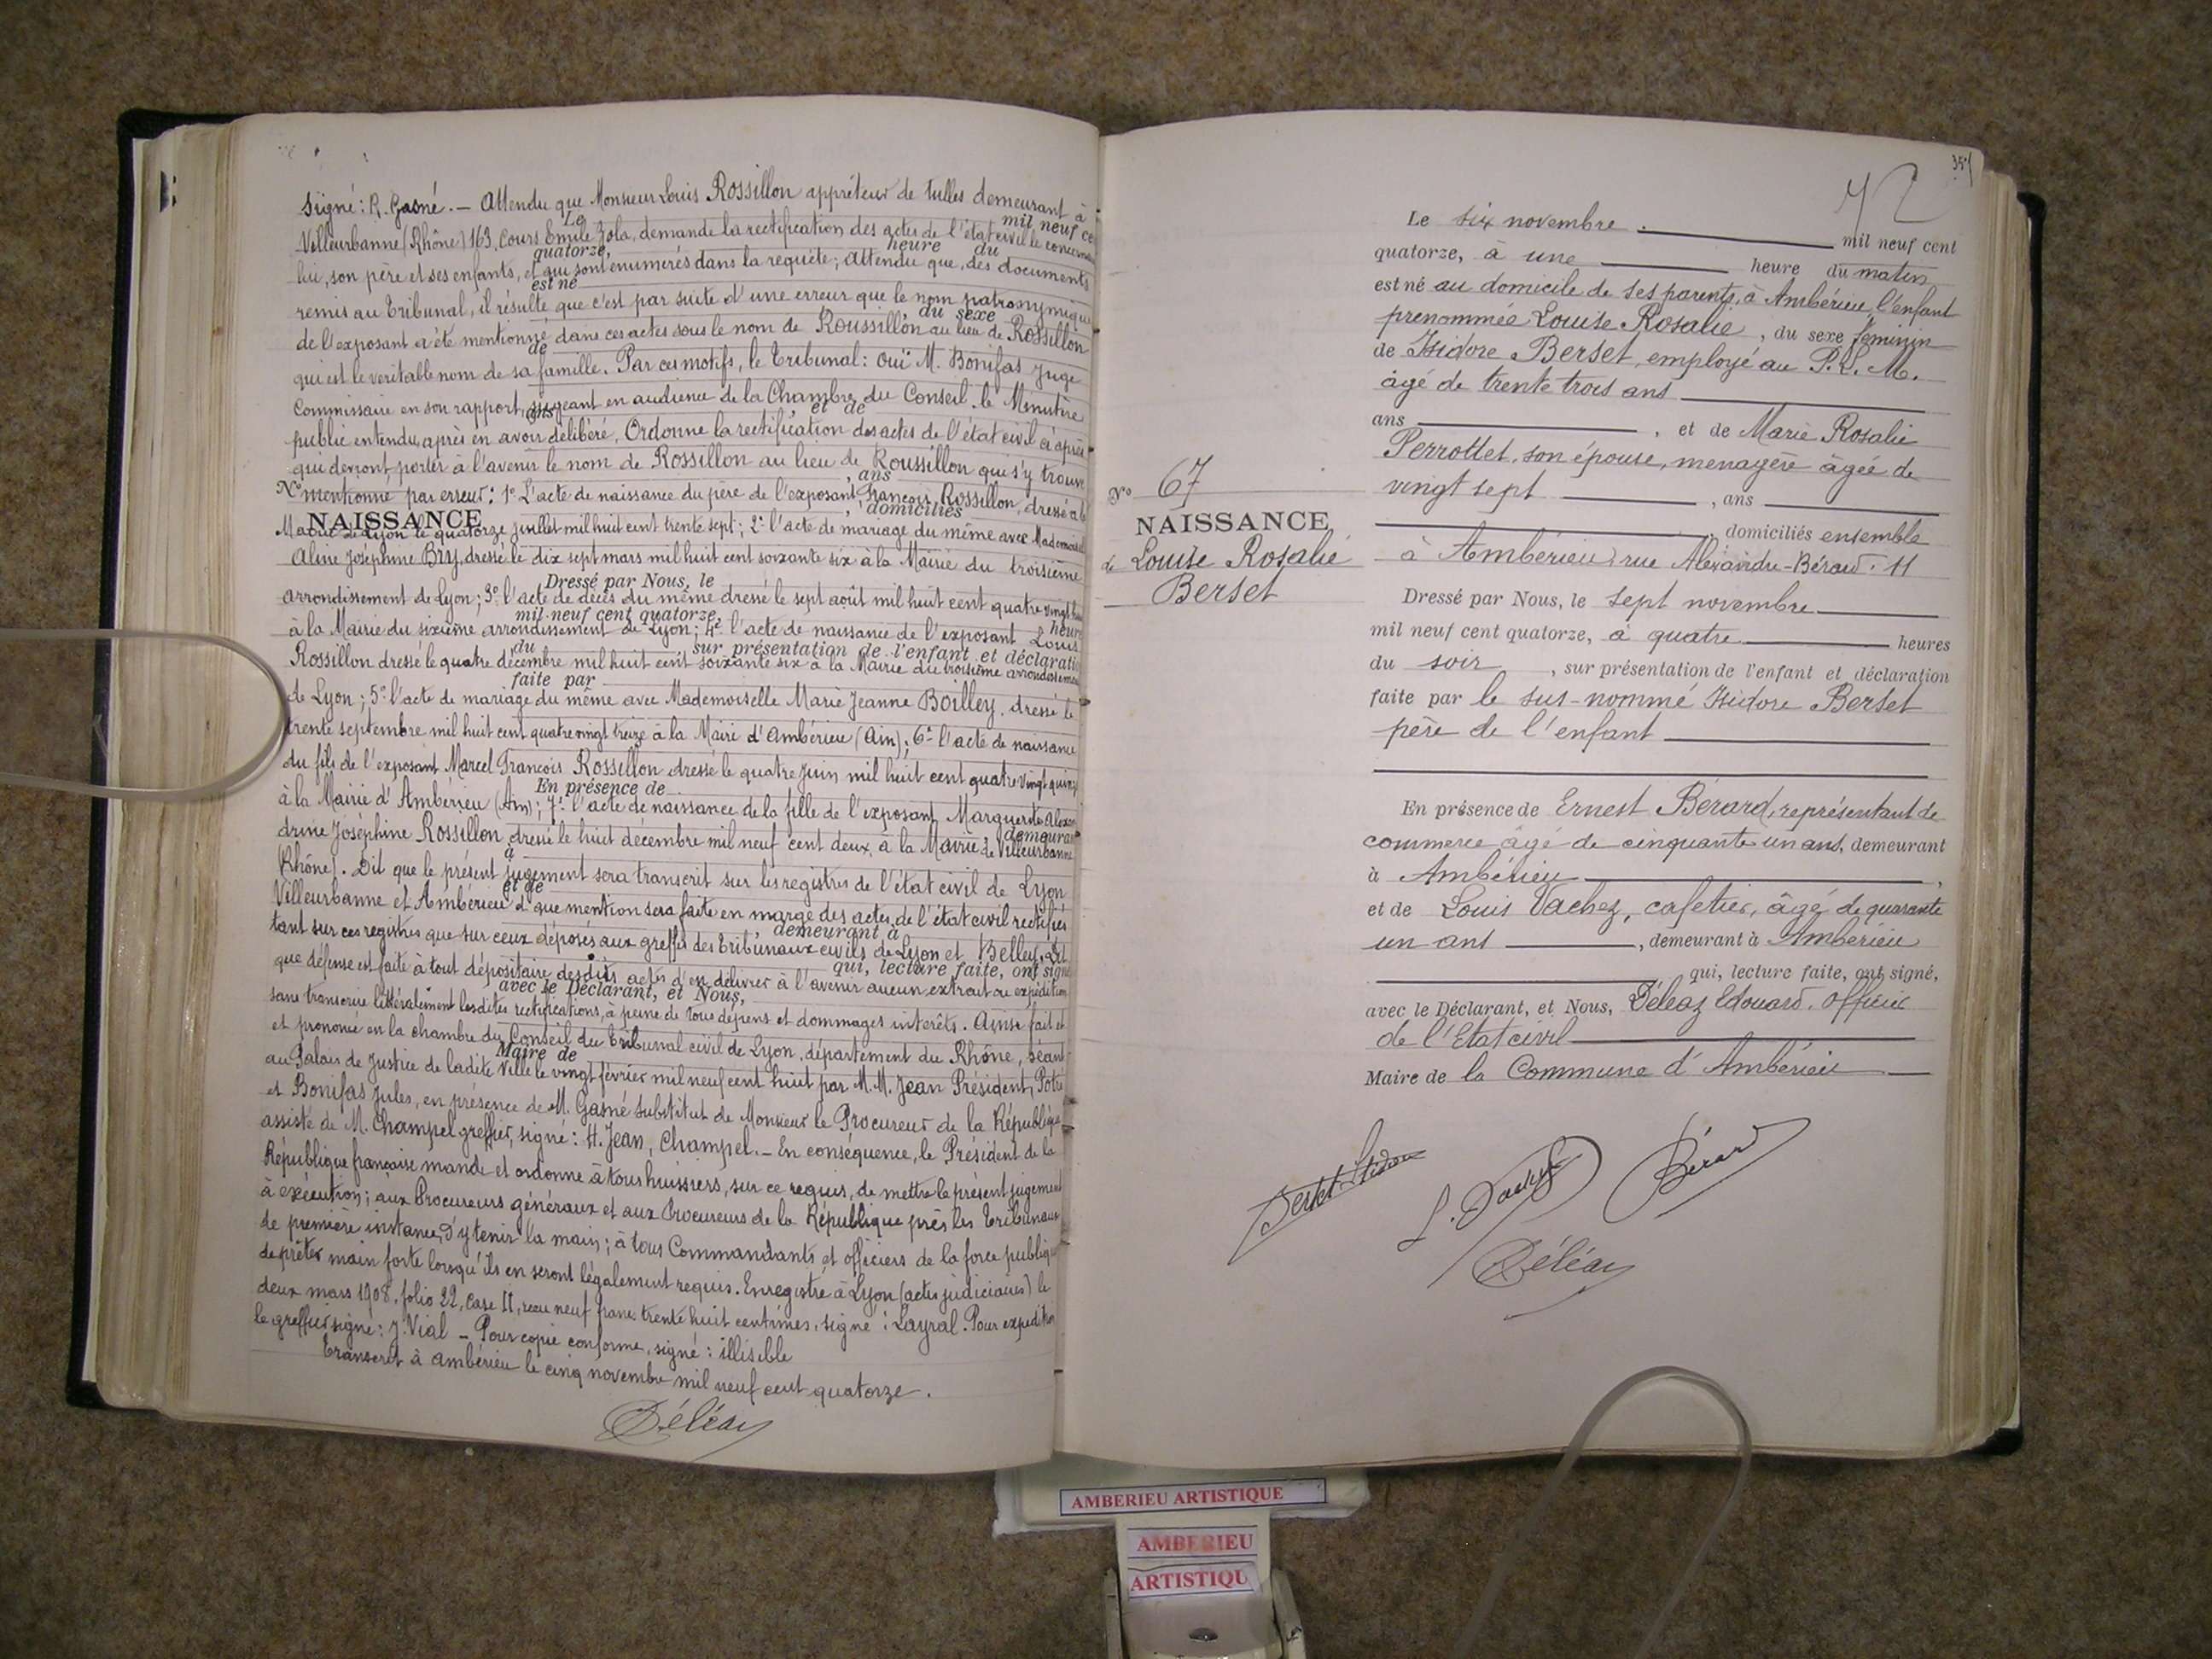 signé : R. Gasné. — Attendu que Monsieur Louis Rossillon appréteur de tulles demeurant à
Le mil neuf ce
Villeurbanne (Rhône) 163, Cours Emile Zola, demande la rectification des actes de l'état civil le concernant
quatorze, heure du
lui, son père et ses enfants, et qui sont énumérés dans la requête ; Attendu que, des documents
est né
remis au Tribunal, il résulte que c'est par suite d'une erreur que le nom patronymique
, du sexe
de l'exposant a été mentionné dans ces actes sous le nom de Roussillon au lieu de Rossillon
de
qui est le veritable nom de sa famille. Par ces motifs, le Tribunal : Ouï M. Bonifas Juge
Commissaire en son rapport, siegeant en audience de la Chambre du Conseil, le Ministère
ans , et de
public entendu, après en avoir délibéré, Ordonne la rectification des actes de l'état civil ci après
qui devront porter à l'avenir le nom de Rossillon au lieu de Roussillon qui s'y trouve
, ans
No mentionné par erreur : 1o L'acte de naissance du père de l'exposant, François Rossillon, dressé à la
, domiciliés
NAISSANCE
Mairie de Lyon le quatorze juillet mil huit cent trente sept ; 2o l'acte de mariage du même avec Mademoiselle
Aline Joséphine Bry, dressé le dix sept mars mil huit cent soixante six à la Mairie du troisième
Dressé par Nous, le
arrondissement de Lyon ; 3o l'acte de décès du même dressé le sept août mil huit cent quatre vingt
mil neuf cent quatorze, heure
à la Mairie du sixième arrondissement de Lyon ; 4o l'acte de naissance de l'exposant Louis
du sur présentation de l'enfant et déclaratio
Rossillon dressé le quatre décembre mil huit cent soixante six à la Mairie du troisième arrondissement
faite par
de Lyon ; 5o l'acte de mariage du même avec Mademoiselle Marie Jeanne Boilley, dressé le
trente septembre mil huit cent quatre vingt treize à la Mairie d'Ambérieu (Ain) ; 6o l'acte de naissance
du fils de l'exposant Marcel François Rossillon dressé le quatre Juin mil huit cent quatre vingt quinze
En présence de
à la Mairie d'Ambérieu (Ain) ; 7o l'acte de naissance de la fille de l'exposant Marguerite Alexan
demeurant
drine Joséphine Rossillon dressé le huit décembre mil neuf cent deux, à la Mairie de Villeurbanne
à
(Rhône). Dit que le présent jugement sera transcrit sur les registres de l'état civil de Lyon
et de
Villeurbanne et Ambérieu et que mention sera faite en marge des actes de l'état civil rectifiés
, demeurant à
tant sur ces registres que sur ceux déposés aux greffes des Tribunaux civils de Lyon et Belley, Dit
qui, lecture faite, ont signé
que défense est faite à tout dépositaire desdits actes d'en délivrer à l'avenir aucun extrait ou expédition
avec le Déclarant, et Nous,
sans transcrire littéralement lesdites rectifications, à peine de tous dépens et dommages intérêts. Ainsi fait et
et prononcé en la chambre du Conseil du Tribunal civil de Lyon, département du Rhône, séant
Maire de
au Palais de Justice de ladite Ville le vingt février mil neuf cent huit par M.M. Jean Président, Potre
et Bonifas Jules, en présence de M. Gasné Substitut de Monsieur le Procureur de la République
assisté de M. Champel greffier, signé : H. Jean, Champel. — En conséquence, le Président de la
République française mande et ordonne à tous huissiers, sur ce requis, de mettre le présent jugement
à exécution ; aux Procureurs généraux et aux Procureurs de la République près les Tribunaux
de première instance, d'y tenir la main ; à tous Commandants et officiers de la force publique
de prêter main forte lorsqu'ils en seront légalement requis. Enregistré à Lyon (actes judiciaires) le
deux mars 1908, folio 22, case 11, reçu neuf francs trente huit centimes, signé : Layral. Pour expédition
le greffier signé : J. Vial — Pour copie conforme, signé : illisible
Transcrit à Ambérieu le cinq novembre mil neuf cent quatorze.
Déléaz
357
72
Le six novembre mil neuf cent
quatorze, à une heure du matin
est né au domicile de ses parents, à Ambérieu, l'enfant
prénommée Louise Rosalie, du sexe féminin
de Isidore Berset, employé au P.L.M.
âgé de trente trois ans
ans , et de Marie Rosalie
Perrottet, son épouse, menagère âgée de
vingt sept , ans
, domiciliés ensemble
à Ambérieu, rue Alexandre-Bérard. 11
No 67
NAISSANCE
de Louise Rosalie
Berset
Dressé par Nous, le sept novembre
mil neuf cent quatorze, à quatre heures
du soir , sur présentation de l'enfant et déclaration
faite par le sus-nommé Isidore Berset
père de l'enfant
En présence de Ernest Bérard, représentant de
commerce âgé de cinquante un ans, demeurant
à Ambérieu ,
et de Louis Vachez, cafetier, âgé de quarante
un ans , demeurant à Ambérieu
, qui, lecture faite, ont signé,
avec le Déclarant, et Nous, Déléaz Edouard, officier
de l'Etat civil
Maire de la Commune d'Ambérieu
Berset Isidore
L. Vachez
Bérard
Déléaz
AMBERIEU ARTISTIQUE
AMBERIEU
ARTISTIQU